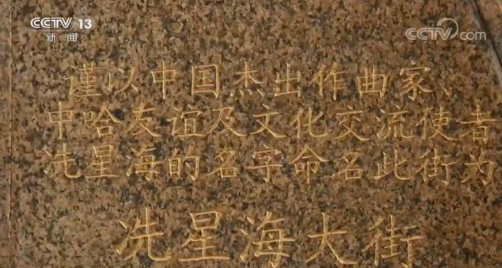 CCTV 13
新闻
CCTV.com
谨以中国杰出作曲家、
中哈友谊及文化交流使者
冼星海的名字命名此街为
冼星海大街